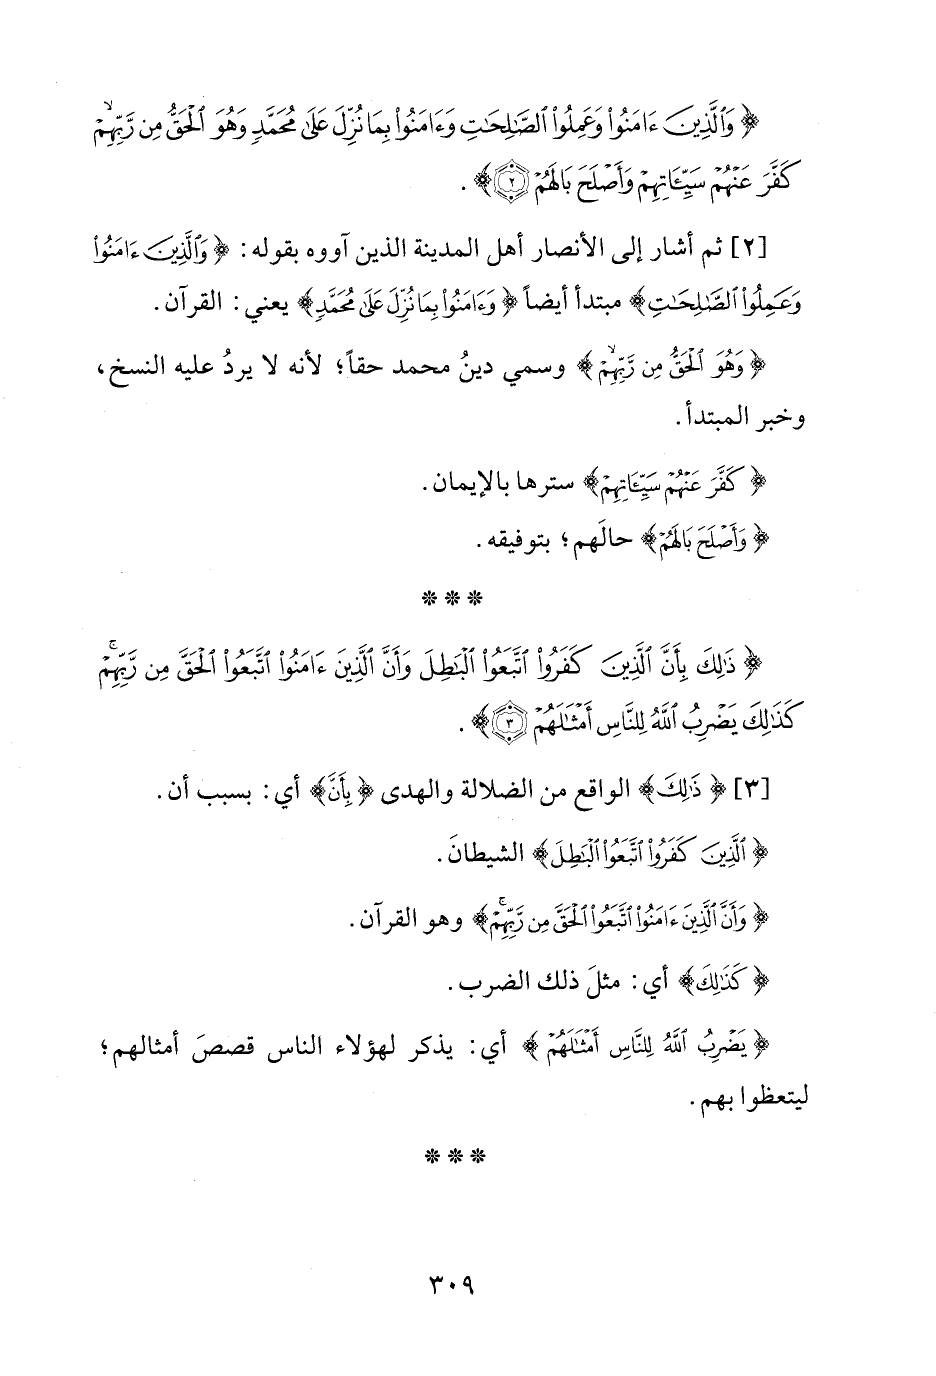 ﴿ وَالَّذِينَ ءَامَنُوا۟ وَعَمِلُوا۟ الصَّـٰلِحَـٰتِ وَءَامَنُوا۟ بِمَا نُزِّلَ عَلَىٰ مُحَمَّدٍ وَهُوَ الْحَقُّ مِن رَّبِّهِمْ ۙ
كَفَّرَ عَنْهُمْ سَيِّـَٔاتِهِمْ وَأَصْلَحَ بَالَهُمْ ۝٢﴾ .
[٢] ثم أشار إلى الأنصار أهل المدينة الذين آووه بقوله: ﴿ وَالَّذِينَ ءَامَنُوا۟
وَعَمِلُوا۟ الصَّـٰلِحَـٰتِ﴾ مبتدأ أيضاً ﴿ وَءَامَنُوا۟ بِمَا نُزِّلَ عَلَىٰ مُحَمَّدٍ﴾ يعني: القرآن.
﴿ وَهُوَ الْحَقُّ مِن رَّبِّهِمْ ۙ﴾ وسمي دينُ محمد حقاً؛ لأنه لا يردُ عليه النسخ،
وخبر المبتدأ.
﴿ كَفَّرَ عَنْهُمْ سَيِّـَٔاتِهِمْ﴾ سترها بالإيمان.
﴿ وَأَصْلَحَ بَالَهُمْ﴾ حالَهم؛ بتوفيقه.
* * *
﴿ ذَٰلِكَ بِأَنَّ الَّذِينَ كَفَرُوا۟ اتَّبَعُوا۟ الْبَـٰطِلَ وَأَنَّ الَّذِينَ ءَامَنُوا۟ اتَّبَعُوا۟ الْحَقَّ مِن رَّبِّهِمْ ۚ
كَذَٰلِكَ يَضْرِبُ اللَّهُ لِلنَّاسِ أَمْثَـٰلَهُمْ ۝٣﴾ .
[٣] ﴿ ذَٰلِكَ﴾ الواقع من الضلالة والهدى ﴿ بِأَنَّ﴾ أي: بسبب أن.
﴿ الَّذِينَ كَفَرُوا۟ اتَّبَعُوا۟ الْبَـٰطِلَ﴾ الشيطانَ.
﴿ وَأَنَّ الَّذِينَ ءَامَنُوا۟ اتَّبَعُوا۟ الْحَقَّ مِن رَّبِّهِمْ ۚ﴾ وهو القرآن.
﴿ كَذَٰلِكَ﴾ أي: مثلَ ذلك الضرب.
﴿ يَضْرِبُ اللَّهُ لِلنَّاسِ أَمْثَـٰلَهُمْ ﴾ أي: يذكر لهؤلاء الناس قصصَ أمثالهم؛
ليتعظوا بهم.
* * *
٣٠٩